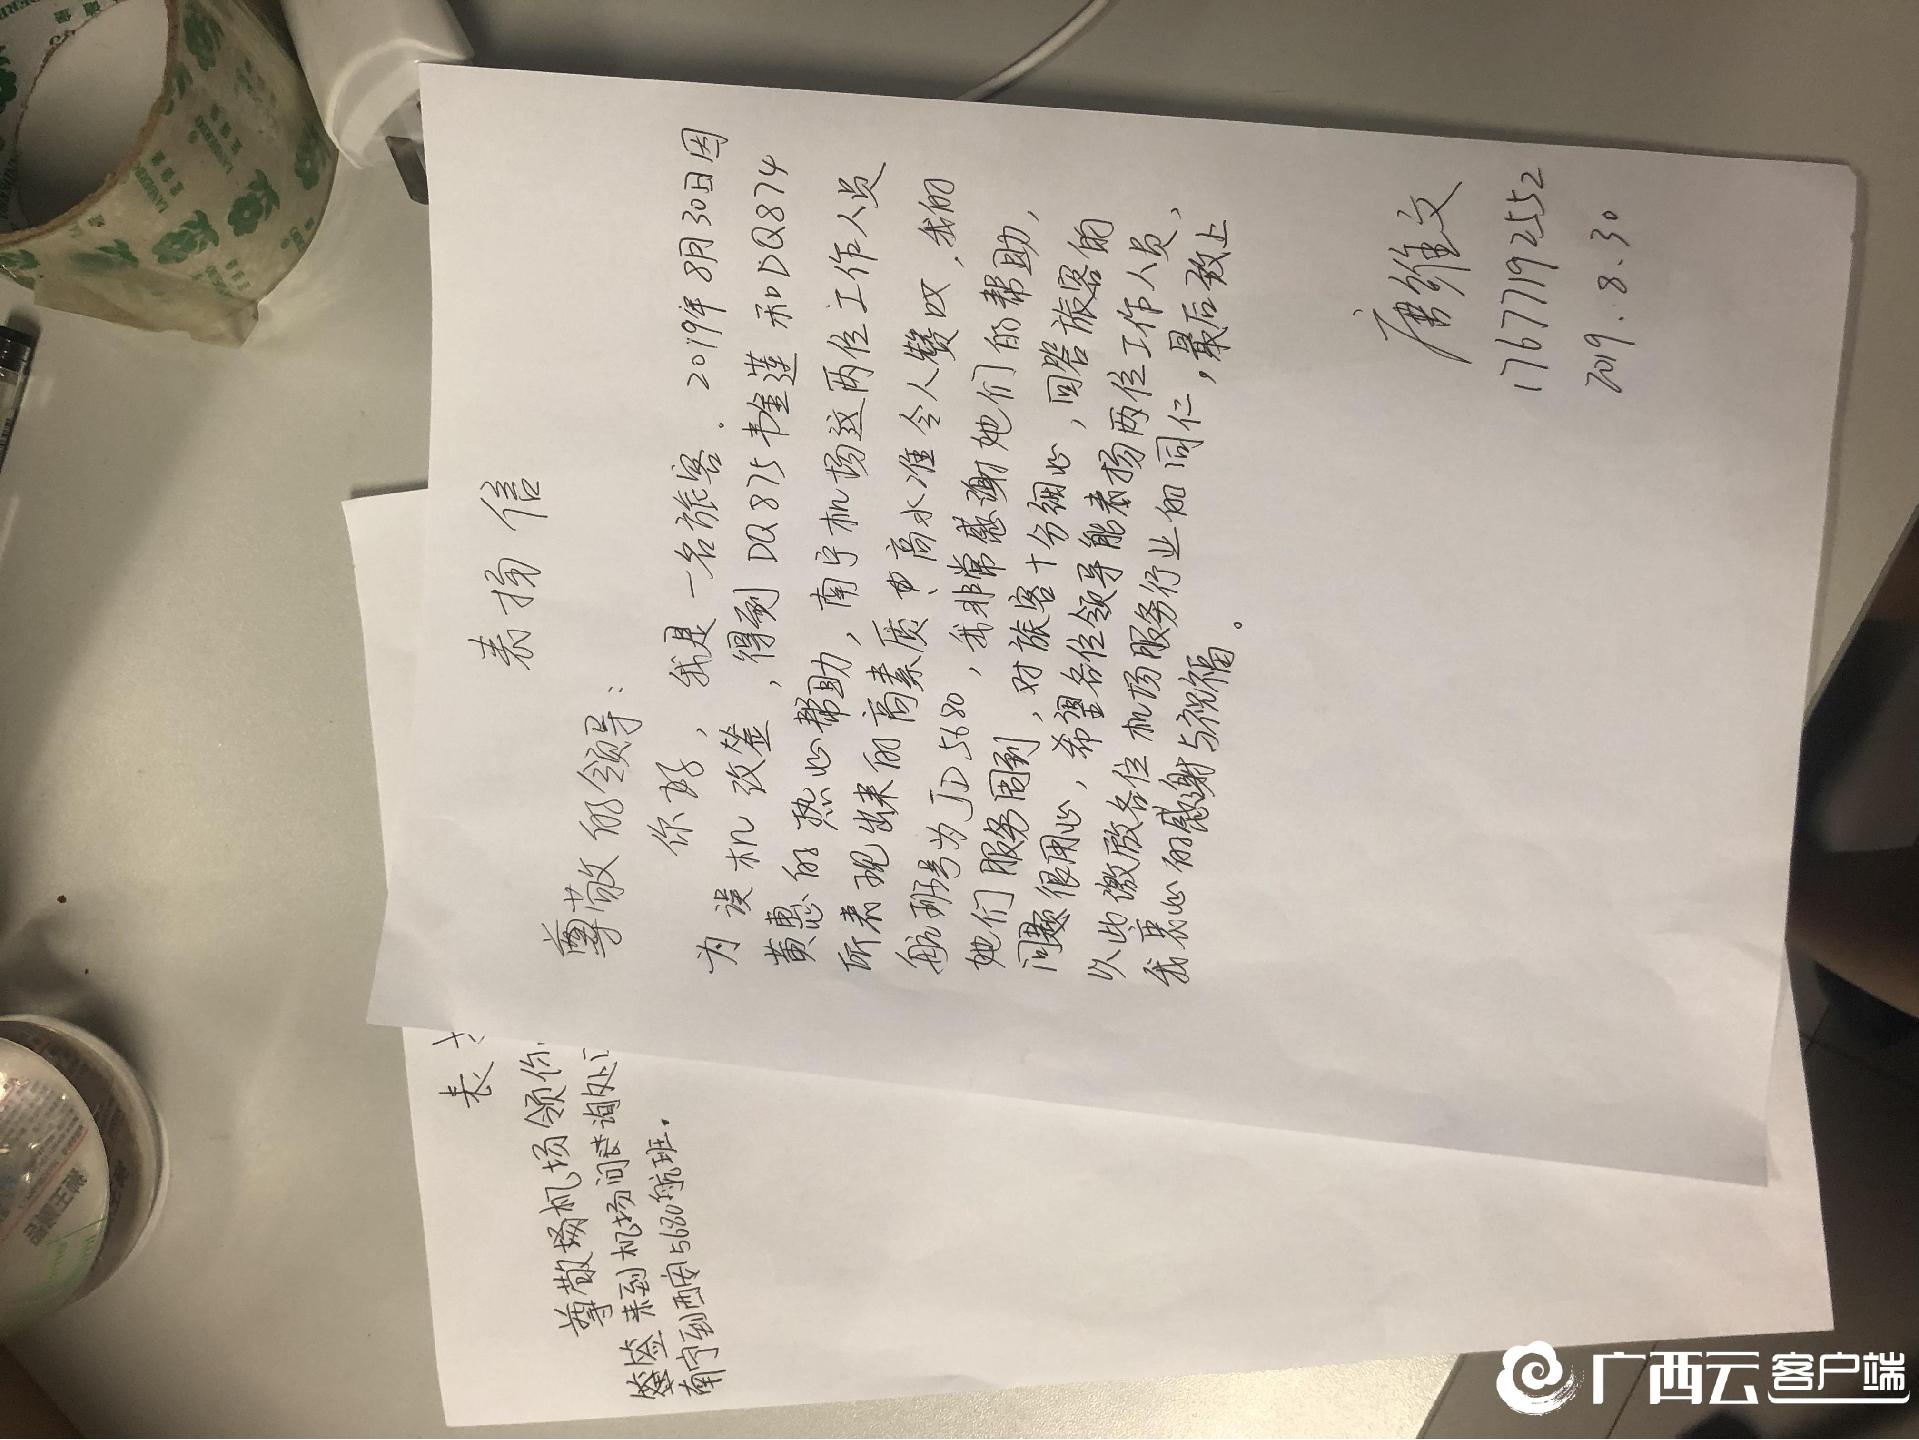 表扬信
尊敬的领导：
你好，我是一名旅客．2019年8月30日因
为误机改签，得到DQ875韦金莲和DQ874
黄惠的热心帮助，南宁机场这两位工作人员
所表现出来的高素质高水准令人赞叹，我的
航班号为JD5680，我非常感谢她们的帮助，
她们服务周到，对旅客十分细心，回答旅客的
问题很用心，希望各位领导能表扬两位工作人员，
以此激励各位机场服务行业的同仁，最后致上
我衷心的感谢与祝福。
唐维文
17677192552
2019.8.30
表
尊敬机场领你
签签来到机场问询处
南宁到西安5680航班．
广西云客户端